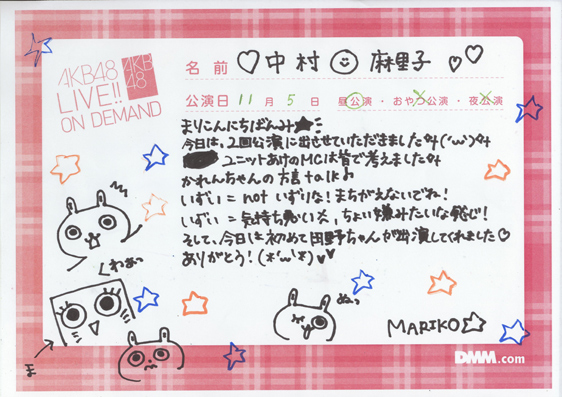 AKB48
LIVE!!
ON DEMAND
AKB
48
名前 ♡中村☺麻里子 ♡♡
公演日 11月5日 昼公演・おやつ公演・夜公演
まりこんにちばんみ★ミ
今日は、2回公演に出させていただきました♪(´ω`)♪
ユニットあけのMCは皆で考えました♪
かれんちゃんの方言talk♪
いずい = not いずりな! まちがえないでね!
いずい = 気持ち悪い〆、ちょい嫌みたいな感じ!
そして、今日は初めて田野ちゃんが出演してくれました♡
ありがとう! (*'ω'*)♥♥
くわぁっ
ぬっ
ま
MARIKO☆
DMM.com